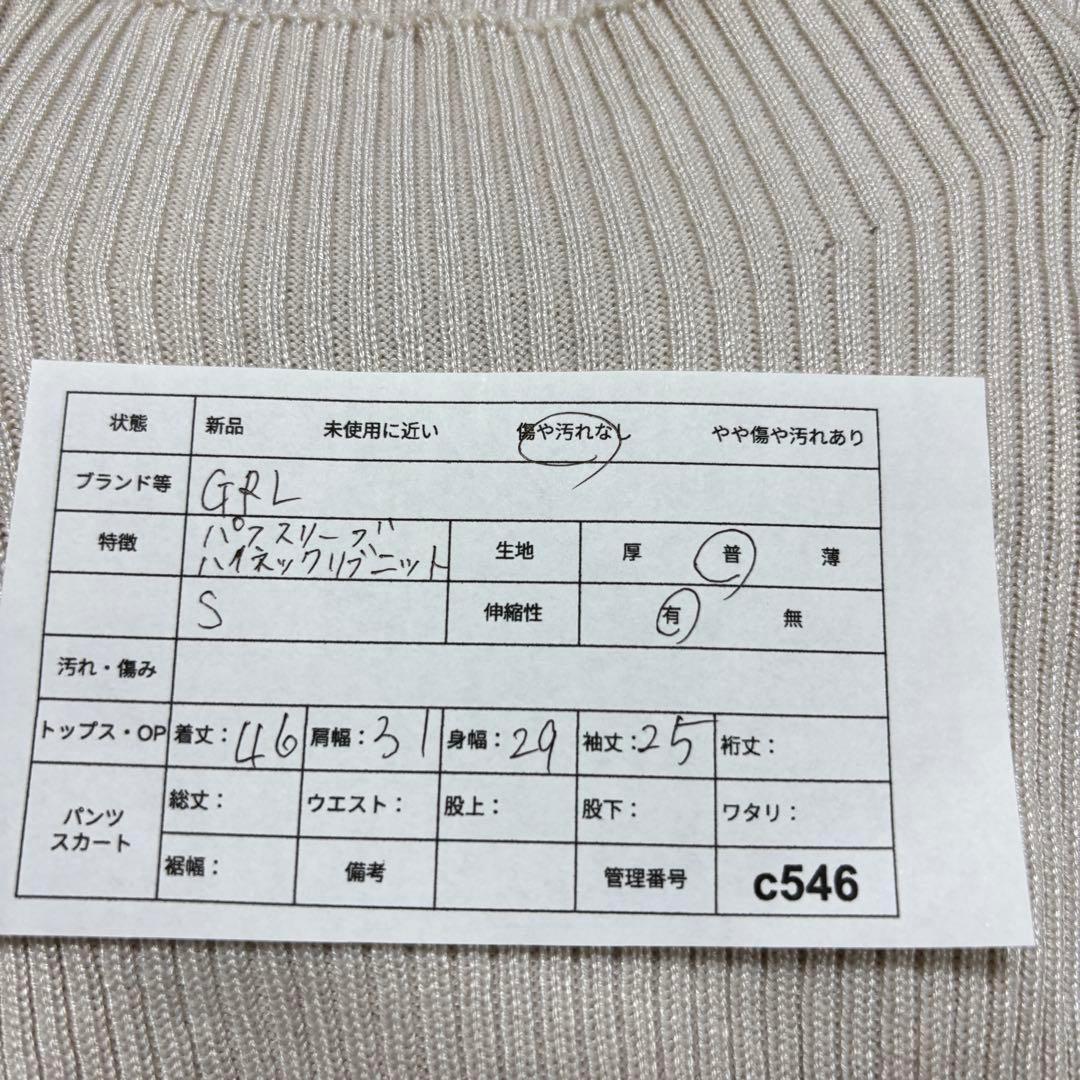 状態 新品 未使用に近い 傷や汚れなし やや傷や汚れあり
ブランド等 GRL
特徴 パフスリーブ ハイネックリブニット 生地 厚 普 薄
S 伸縮性 有 無
汚れ・傷み
トップス・OP 着丈:46 肩幅:31 身幅:29 袖丈:25 裄丈:
パンツ スカート 総丈: ウエスト: 股上: 股下: ワタリ:
裾幅: 備考 管理番号 c546